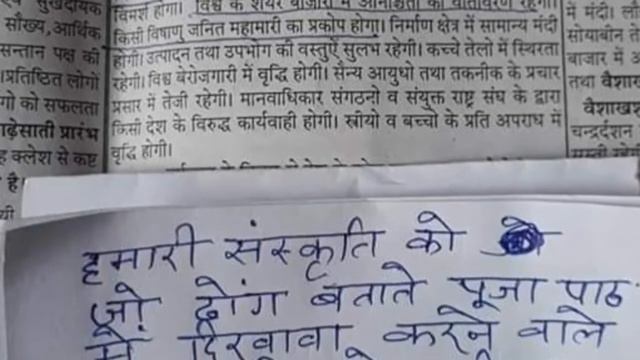 सौख्य,आर्थिक
सन्तान पक्ष की
प्रतिष्ठित लोगों
गो को सफलता
ाढ़ेसाती प्रारंभ
ह क्लेश से कष्ट
है।
विमर्श होगा। विश्व के शेयर बाजारों में
किसी विषाणु जनित महामारी का प्रकोप होगा। निर्माण क्षेत्र में सामान्य मंदी
होगी। उत्पादन तथा उपभोग की वस्तुऐं सुलभ रहेगी। कच्चे तेलो में स्थिरता
रहेगी। विश्व बेरोजगारी में वृद्धि होगी। सैन्य आयुधो तथा तकनीक के प्रचार
प्रसार में तेजी रहेगी। मानवाधिकार संगठनो व संयुक्त राष्ट्र संघ के द्वारा
किसी देश के विरुद्ध कार्यवाही होगी। स्त्रीयो व बच्चो के प्रति अपराध में
वृद्धि होगी।
में मंदी।
सोयाबीन ते
बाजार में
तथा वैशा
वैशाख
चन्द्रदर्शन
हमारी संस्कृति को
जो ढोंग बताते पूजा पाठ
में दिखावा करने वाले